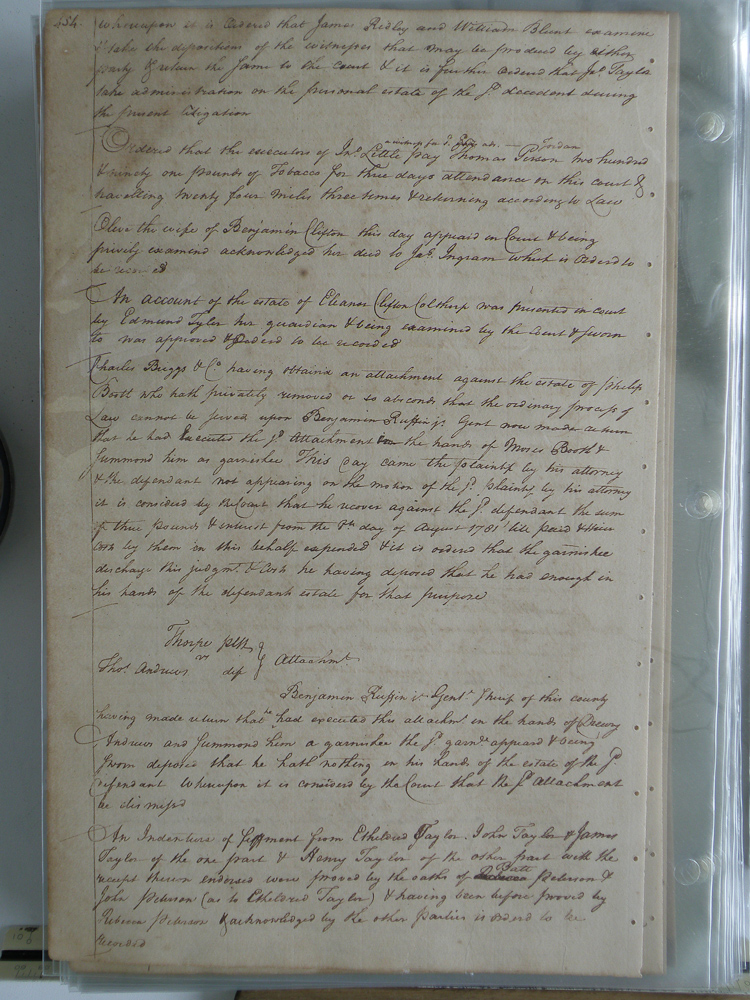 454.
whereupon it is Ordered that James Ridley and William Blunt examine
& take the depositions of the witnesses that may be produced by either
party & return the same to the court & it is further ordered that Jno. Taylor
take administration on the personal estate of the sd. decedent during
the present litigation
Ordered that the executors of Jno. Little pay Thomas Person two hundred
Jordan
& ninety one pounds of Tobacco for three days attendance on this court &
travelling twenty four miles three times & returning according to Law
Olive the wife of Benjamin Clifton this day appeard in Court & being
privily examind acknowledged her deed to Jas. Ingram which is Orderd to
be recorded
An account of the estate of Eleanor Clifton Colthorp was presented in court
by Edmund Tyler her guardian & being examined by the Court & sworn
to was approved & Orderd to be recorded
Charles Briggs & Co. having obtaind an attachment against the estate of Philip
Booth who hath privately removed or so absconds that the ordinary process of
Law cannot be served upon Benjamin Ruffin jr. Gent now made return
that he had Executed the sd. Attachment the hands of Moses Booth &
summond him as garnishee This day came the plaintif by his attorney
& the defendant not appearing on the motion of the sd. plaintif by his attorney
it is considerd by the Court that he recover against the sd. defendant the sum
of three pounds & interest from the day of August 1781 till paid & their
costs by them in this behalf expended & it is ordered that the garnishee
discharge this judgmt. & Costs he having deposed that he had enough in
his hands of the defendants estate for that purpose
Thorpe plt
vs
Thos. Andrews def
Attachmt
Benjamin Ruffin jr Gent. Sherif of this county
having made return that he had executed this attachmt. in the hands of Drewry
Andrews and summond him a garnishee the sd. garne. appeard & being
sworn deposed that he hath nothing in his hands of the estate of the sd.
defendant Whereupon it is considerd by the Court that the sd. Attachment
be dismissd
An Indenture of feoffment from Etheldred Taylor, John Taylor & James
Taylor of the one part & Henry Taylor of the other part with the
receipt thereon endorsed were proved by the oaths of Batt Peterson &
John Peterson (as to Etheldred Taylor) & having been before proved by
Rebecca Peterson & acknowledged by the other Parties is orderd to be
recorded